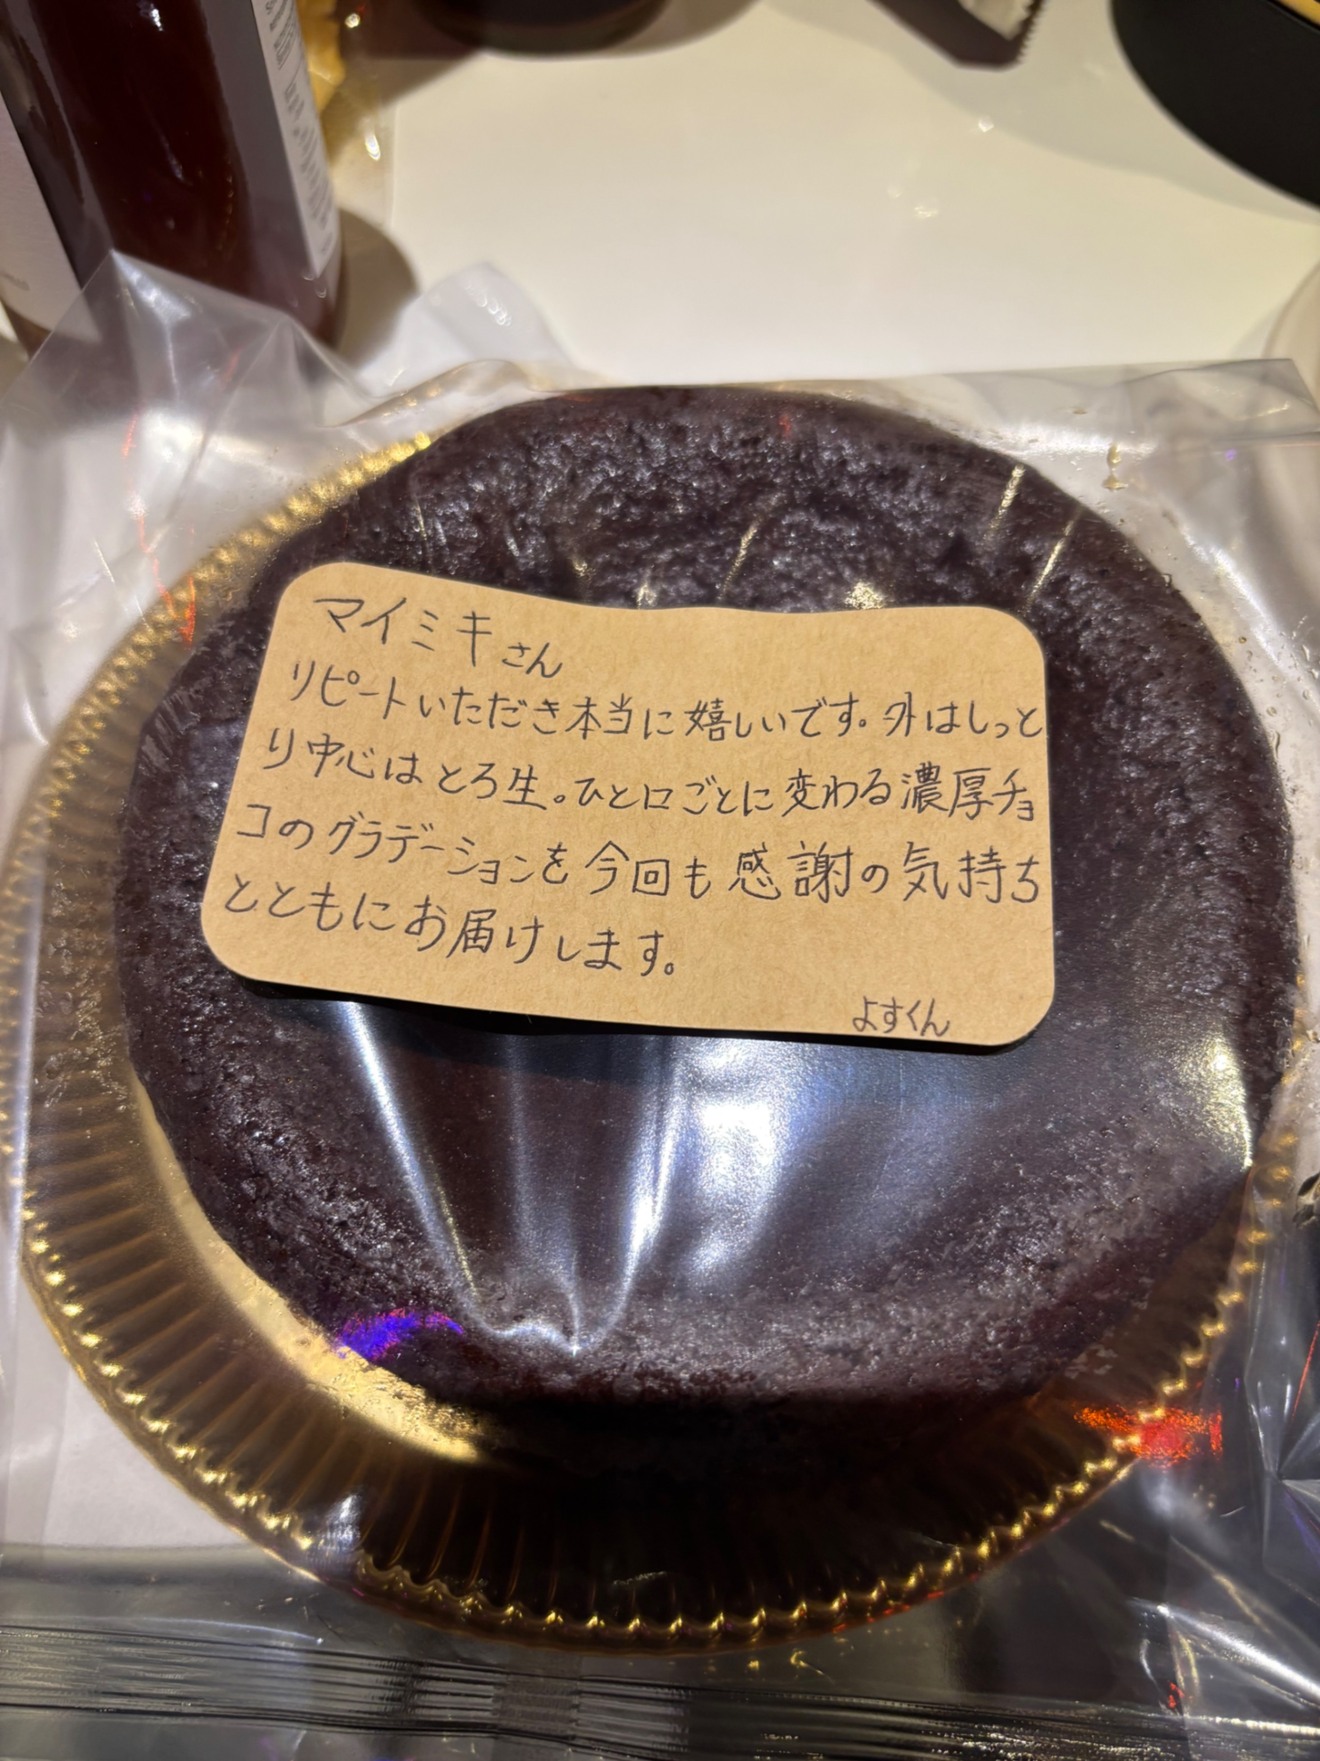 マイミキさん
リピートいただき本当に嬉しいです。外はしっと
り中心はとろ生。ひと口ごとに変わる濃厚チョ
コのグラデーションを今回も感謝の気持ち
とともにお届けします。
よすくん